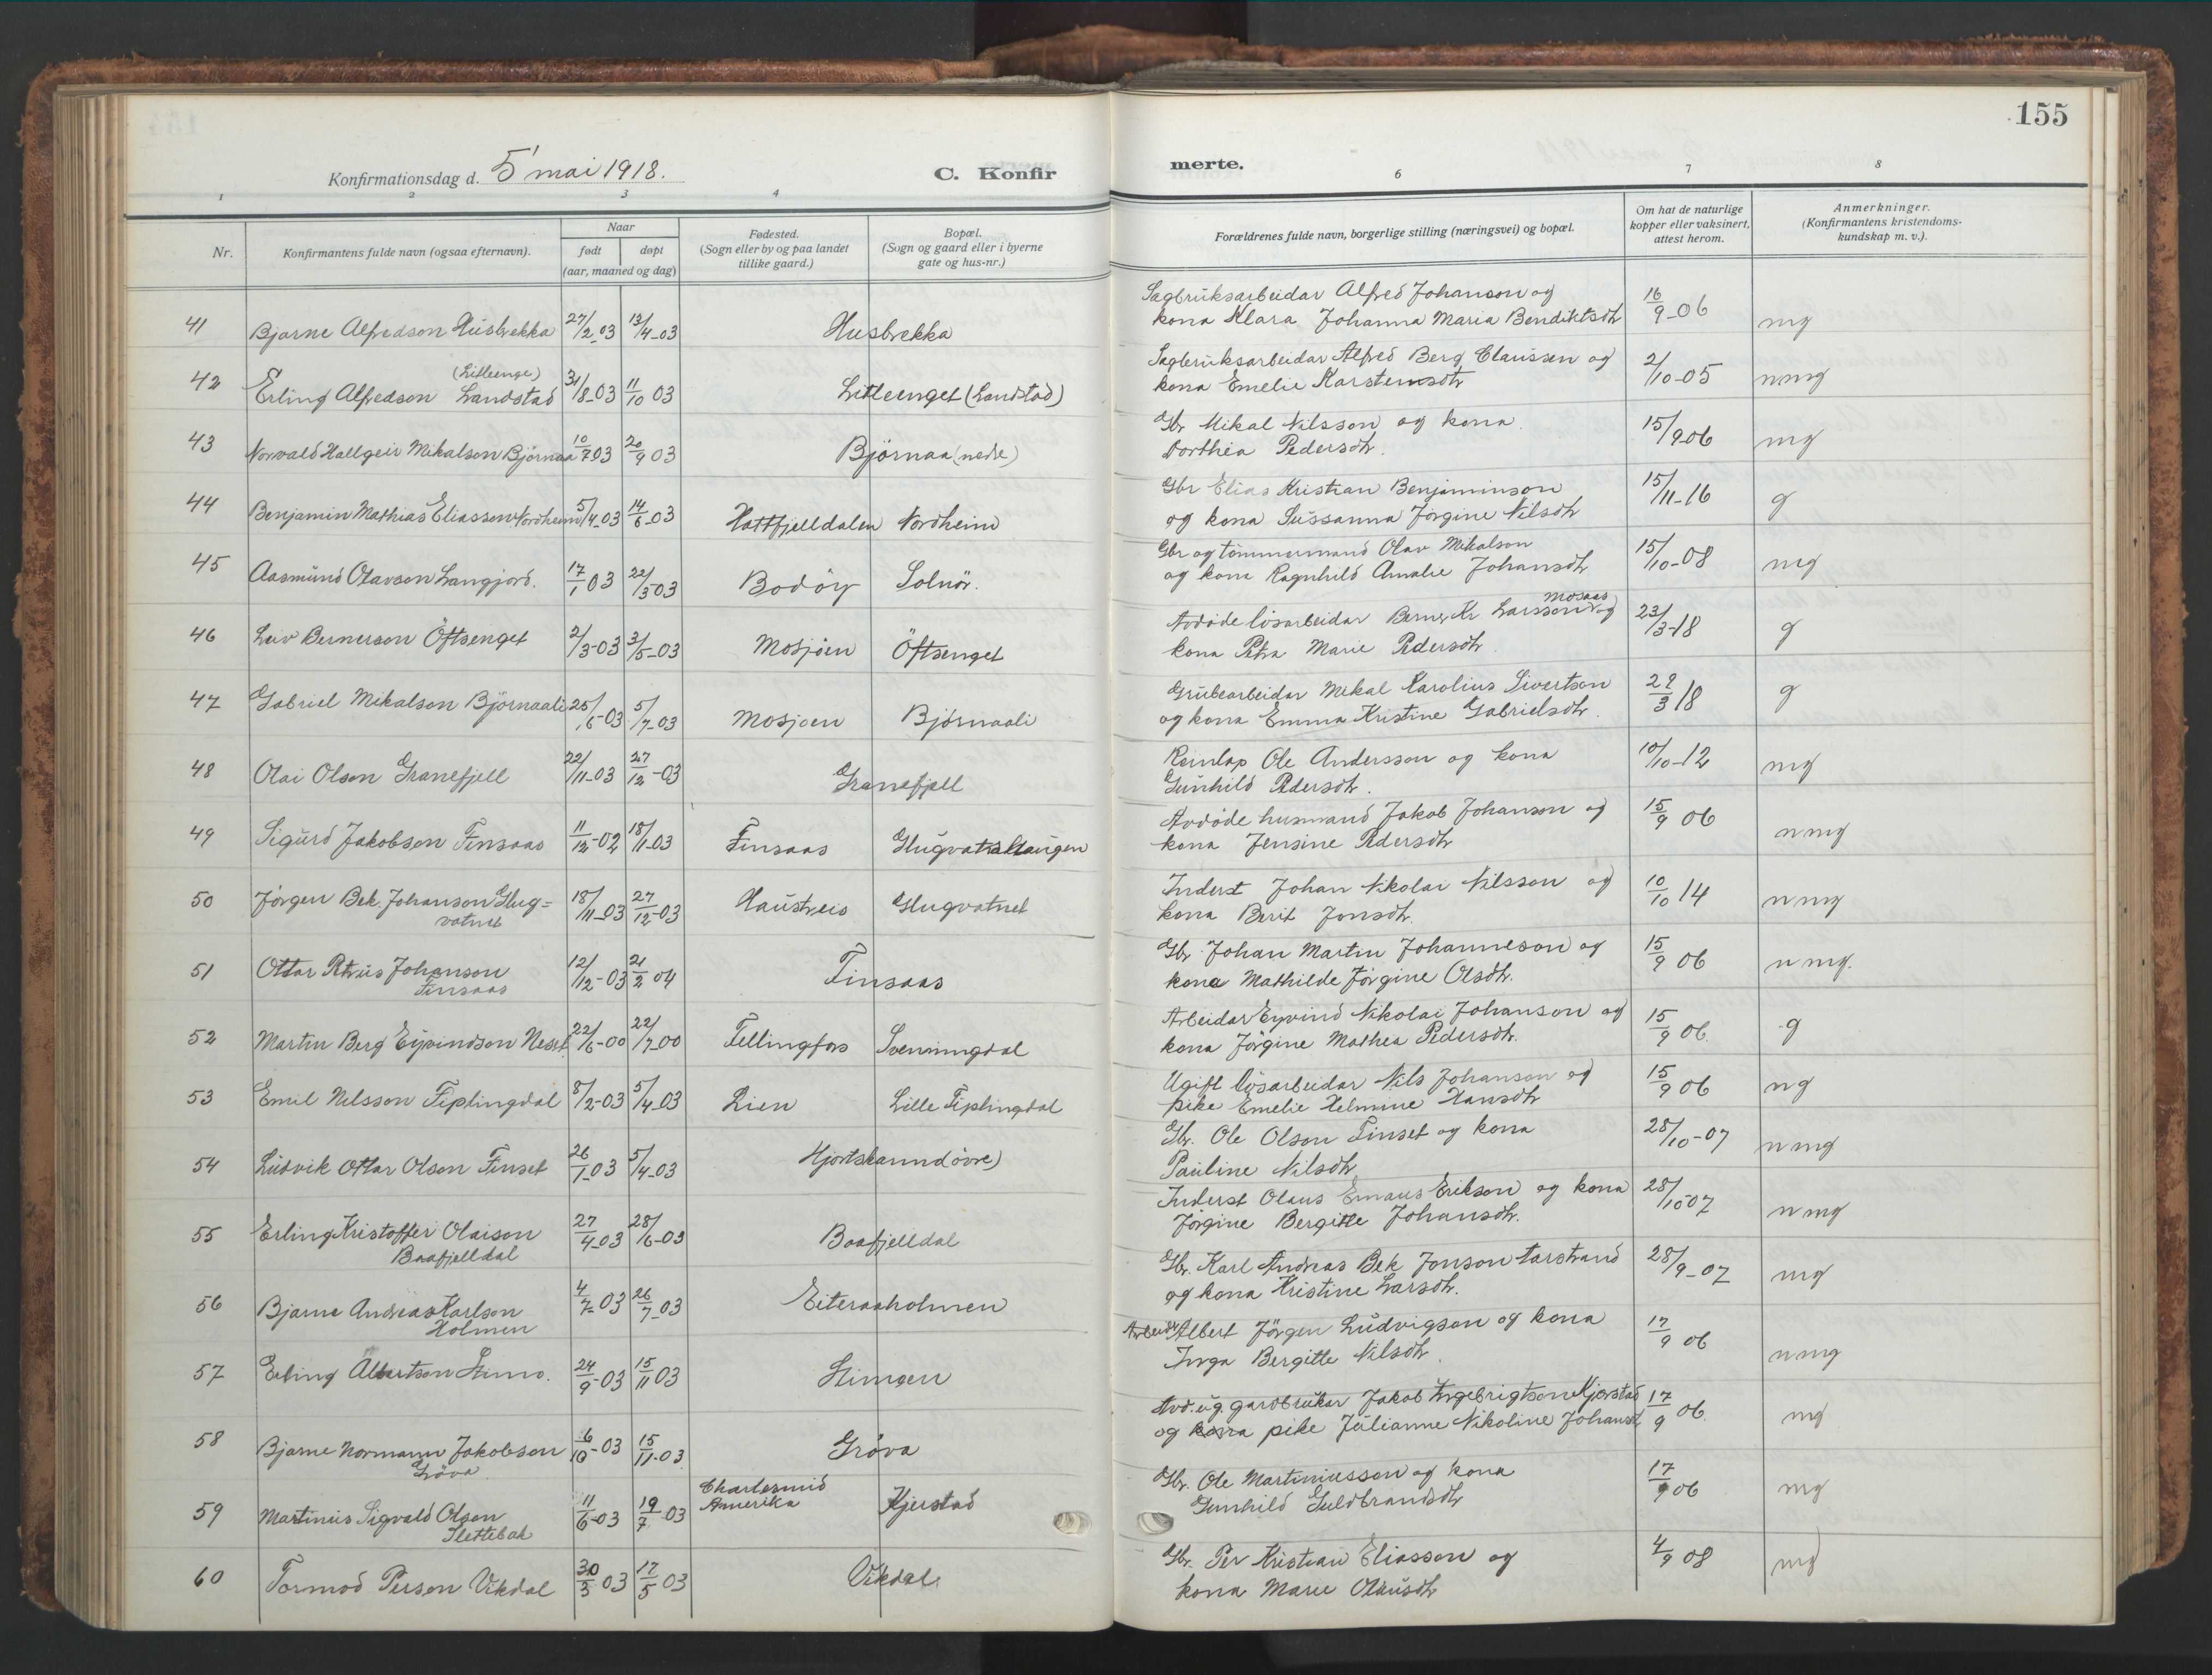 155
Konfirmationsdag d. 5' mai 1918.
C. Konfir
merte.
1 2 3 4 6 7 8
Nr.
Konfirmantens fulde navn (ogsaa efternavn).
Naar
født døpt
(aar, maaned og dag)
Fødested.
(Sogn eller by og paa landet
tillike gaard.)
Bopæl.
(Sogn og gaard eller i byerne
gate og hus-nr.)
Forældrenes fulde navn, borgerlige stilling (næringsvei) og bopæl.
Om hat de naturlige
kopper eller vaksinert,
attest herom.
Anmerkninger.
(Konfirmantens kristendoms-
kundskap m. v.).
Sagbruksarbeidar Alfred Johanson og
41 Bjarne Alfredson Husbrekka 27/2-03 13/4-03 Husbrekka kona Klara Johanna Maria Bendiktsdtr 16/9-06 mg
(Litleenge)
Sagbruksarbeidar Alfred Berg Claussen og
42 Erling Alfredson Landstad 31/8-03 11/10 03 Litleenget (Landstad) kona Emelie Karstensdtr 2/10-05 nmg
Gbr Mikal Nilsson og kona
43 Norvald Hallgeir Mikalson Björnaa 10/7 03 20/9 03 Björnaa (nedre) Dorthea Pedersdtr. 15/9 06 mg
Gbr Elias Kristian Benjaminson
44 Benjamin Mathias Eliasson Nordheim 5/4-03 14/6-03 Hattfjelldalen Nordheim og kona Sussanna Jörgine Nilsdtr 15/11-16 g
Gbr og tömmermand Olav Mikalson
45 Aasmund Olavson Langjord. 17/1 03 22/3 03 Bodöy Solnör. og kona Ragnhild Amalie Johansdtr 15/10-08 mg
Mosaas
Avdøde løsarbeidar Berner Kr Larsson og
46 Leiv Bernerson Öftsenget 2/3-03 3/5-03 Mosjöen Öftsenget kona Petra Marie Pedersdtr. 23/3-18 g
Grubearbeidar Mikal Karolius Sivertson
47 Gabriel Mikalson Björnaali 25/5-03 5/7-03 Mosjoen Björnaali og kona Emma Kristine Gabrielsdtr. 22/3 18 g
Reinlap Ole Andersson og kona
48 Olai Olson Granefjell 22/11-03 27/12-03 Granefjell Gunhild Pedersdtr. 10/10-12 mg
Avdøde husmand Jakob Johanson og
49 Sigurd Jakobson Finsaas 11/12-02 18/1-03 Finsaas Glugvatshaugen kona Jensine Pedersdtr 15/9 06 nmg
Inderst Johan Nikolai Nilsson og
50 Jörgen Bek. Johanson Glug= 18/11-03 27/12-03 Haustreis Glugvatnet kona Berit Jonsdtr. 10/10 14 nmg
vatnet
Gbr. Johan Martin Johanneson og
51 Ottar Petrus Johanson 12/12-03 21/2 04 Finsaas kona Mathilde Jörgine Olsdtr. 15/9 06 nmg.
Finsaas
Arbeidar Eyvind Nikolai Johanson og
52 Martin Berg Eyvindson Neset 22/6-00 22/7-00 Fellingfors Svenningdal kona Jörgine Mathea Pedersdtr. 15/9 06. g
Ugift løsarbeidar Nils Johanson og
53 Emil Nilsson Fiplingdal 8/2-03 5/4-03 Lien Lille Fiplingdal pike Emelie Helmine Hansdtr 15/9 06 ng
Gbr. Ole Olson Finset og kona
54 Ludvik Ottar Olson Finset 26/1-03 5/4-03 Hjortskarmd övre) Pauline Nilsdtr 28/10-07 nmg
Inderst Olaus Emaus Erikson og kona
55 Erling Kristoffer Olaison 27/4-03 28/6-03 Baafjelldal Jörgine Bergitte Johansdtr. 28/10 07 nmg
Baafjelldal
Gbr. Karl Andreas Bek Jonson tarstrand
56 Bjarne Andreas Karlson 4/7-03 26/7-03 Eiteraaholmen og kona Kristine Larsdtr. 28/9-07 mg
Holmen
Arbeidar Albert Jörgen Ludvigson og kona
57 Erling Albertson Stimo. 24/9-03 15/11 03 Stimoen Inga Bergitte Nilsdtr. 17/9 06 nmg
Avd. ug. gardbrukar Jakob Ingebrigtson Kjerstad
58 Bjarne Normann Jakobson 6/10-03 15/11-03 Gröva og kona pike Julianne Nikoline Johansd 17/9 06. mg
Gröva.
Gbr. Ole Martiniusson og kona
59 Martinius Sigvald Olson 11/6-03 19/7 03 Amerika Kjerstad Gunhild Guldbrandsdtr 17/9 06 mg
Slettebak
Gbr. Per Kristian Eliasson og
60 Tormod Person Vikdal 30/3 03 17/5 03 Vikdal kona Marie Olausdtr 4/9 08 mg